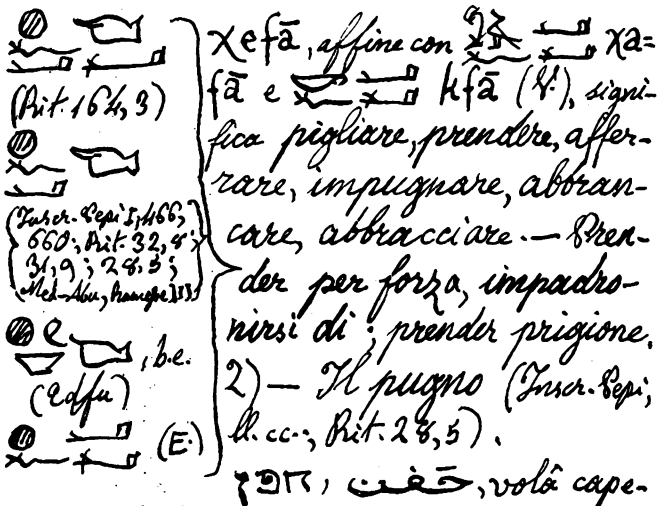 (Rit. 164, 3)
(Inscr. Pepi I, 466,
660; Rit. 32, 8;
31, 9; 28, 5;
, b.e.
(Edfu)
(E.)
χefā, affine con χa=
fā e kfā (V.), signi-
fica pigliare, prendere, affer-
rare, impugnare, abbran-
care, abbracciare. — Pren-
der per forza, impadro-
nirsi di; prender prigione.
2) — Il pugno (Inscr. Pepi,
ll. cc.; Rit. 28, 5).
חפן, حفن, volâ cape-